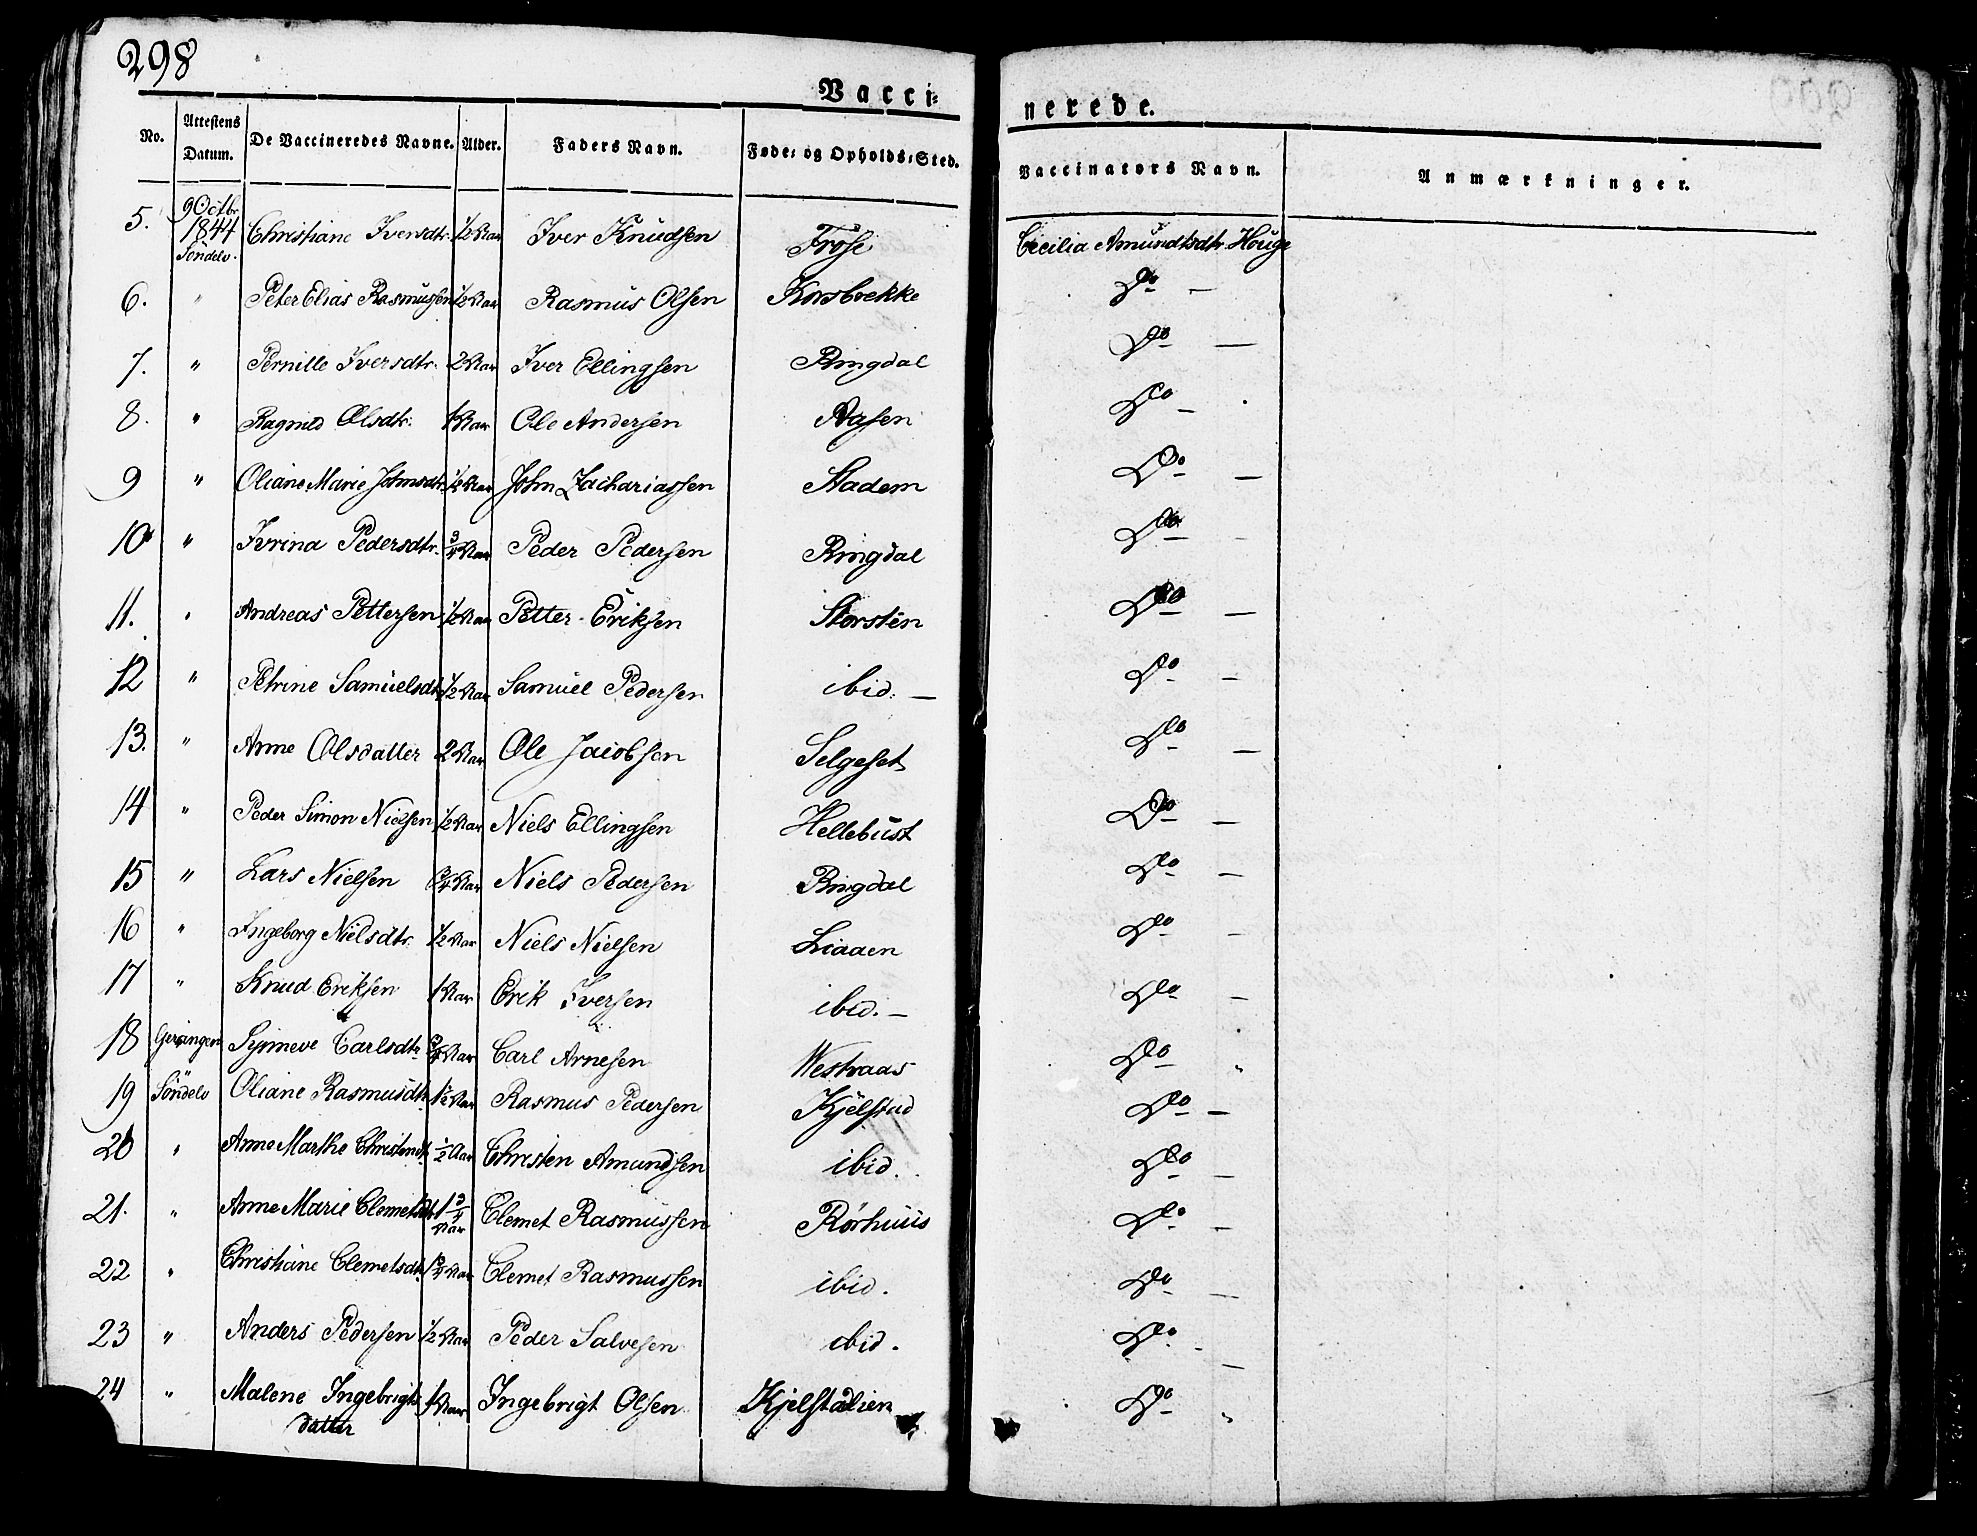 298
Vacci=
nerede.
No. Attestens Datum. De Vaccineredes Navne. Alder. Faders Navn. Føde= og Opholds=Sted. Vaccinators Navn. Anmærkninger.
5. 9 Octbr. 1844 Söndelv. Christiane Iversdtr. 1/2 Aar Iver Knudsen Cecilia Amundtsdtr. Houge
6. " Peter Elias Rasmussen 1/2 Aar Rasmus Olsen Korsbrekke Do —
7. " Pernille Iversdtr. 2 Aar Iver Ellingsen Ringdal Do —
8. " Ragnild Olsdtr. 1 Aar Ole Andersen Aasen Do —
9 " Oliane Marie Johnsdtr. 1/2 Aar John Zachariassen Stadem Do —
10 " Ivrina Pedersdtr. 3/4 Aar Peder Pedersen Ringdal Do
11. " Andreas Pettersen 1/2 Aar Petter Eriksen Storstēn Do —
12 " Petrine Samuelsdtr 1/2 Aar Samuel Pedersen ibid. — Do —
13. " Anne Olsdatter 2 Aar Ole Jacobsen Selgeset Do —
14 " Peder Simon Nielsen 1/2 Aar Niels Ellingsen Hellebust Do —
15 " Lars Nielsen 3/4 Aar Niels Pedersen Ringdal Do —
16 " Ingeborg Nielsdtr. 1/2 Aar Niels Nielsen Liaaen Do —
17 " Knud Eriksen 1 Aar Erik Iversen ibid. — Do —
18 Geranger Synneve Carlsdtr. 3/4 Aar Carl Arnesen Westraas Do "
19 Söndelv Oliane Rasmusdtr. 1 1/2 Aar Rasmus Pedersen Kjelstad Do —
20 " Anne Marthe Christendt. 1/2 Aar Christen Amundsen ibid. Do —
21. " Anne Marie Clemetsdtr 1 3/4 Aar Clemet Rasmussen Rörhuus Do —
22 " Christiane Clemetsdtr. Aar Clemet Rasmussen ibid. Do —
23 " Anders Pedersen 1/2 Aar Peder Salvesen ibid. Do —
24 " Malene Ingebrigts 1 Aar Ingebrigt Olsen Kjelstadlien Do "
datter